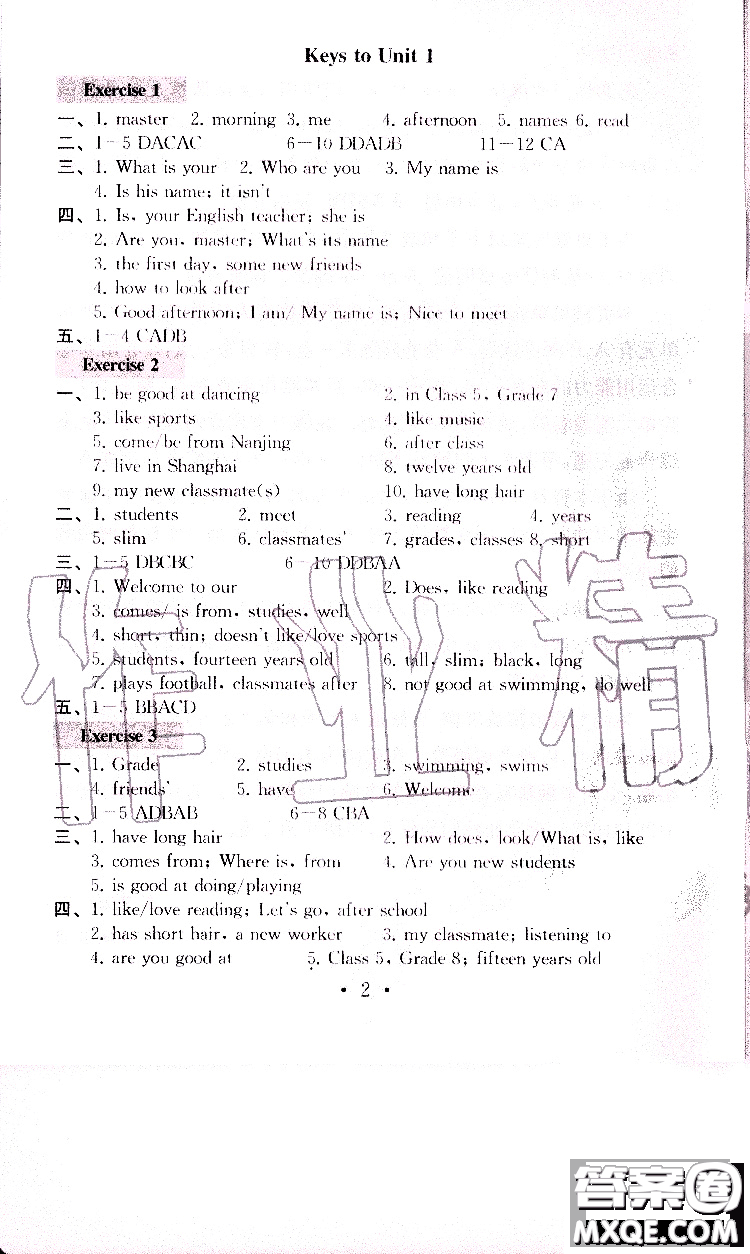 Keys to Unit 1
Exercise 1
一、1. master 2. morning 3. me 4. afternoon 5. names 6. read
二、1—5 DACAC 6—10 DDADB 11—12 CA
三、1. What is your 2. Who are you 3. My name is
4. Is his name; it isn't
四、1. Is, your English teacher; she is
2. Are you, master; What's its name
3. the first day, some new friends
4. how to look after
5. Good afternoon; I am/ My name is; Nice to meet
五、1—4 CADB
Exercise 2
一、1. be good at dancing 2. in Class 5, Grade 7
3. like sports 4. like music
5. come/be from Nanjing 6. after class
7. live in Shanghai 8. twelve years old
9. my new classmate(s) 10. have long hair
二、1. students 2. meet 3. reading 4. years
5. slim 6. classmates' 7. grades, classes 8. short
三、1—5 DBCBC 6—10 DDBAA
四、1. Welcome to our 2. Does, like reading
3. comes/ is from, studies, well
4. short, thin; doesn't like/love sports
5. students, fourteen years old 6. tall, slim; black, long
7. plays football, classmates after 8. not good at swimming, do well
五、1—5 BBACD
Exercise 3
一、1. Grade 2. studies 3. swimming, swims
4. friends' 5. have 6. Welcome
二、1—5 ADBAB 6—8 CBA
三、1. have long hair 2. How does, look/What is, like
3. comes from; Where is, from 4. Are you new students
5. is good at doing/playing
四、1. like/love reading; Let's go, after school
2. has short hair, a new worker 3. my classmate; listening to
4. are you good at 5. Class 5, Grade 8; fifteen years old
· 2 ·
作业精
答案圈
MXQE.COM